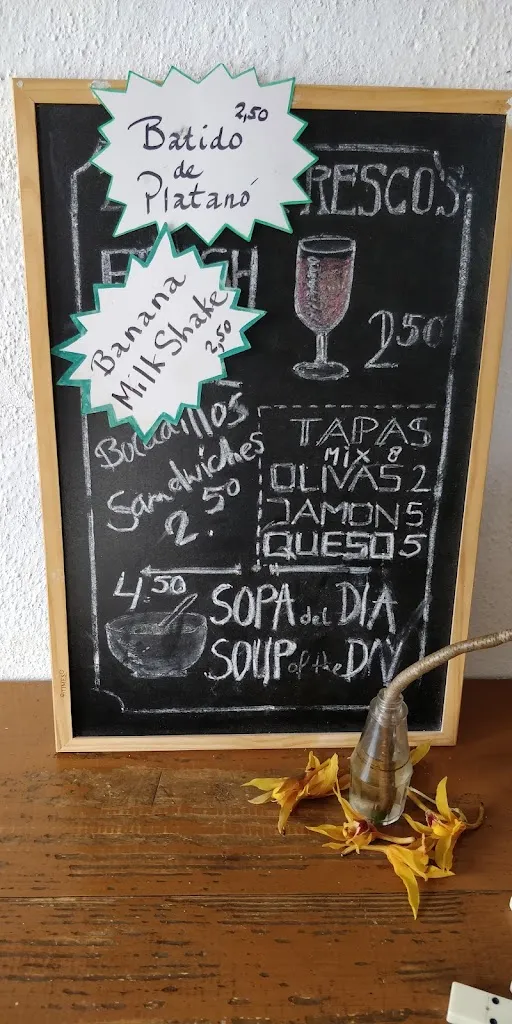 2,50
Batido
de
Platanó
RESCO'S
2 50
Banana
Milk Shake
2,50
Bocadillos
Sandwiches
2.50
TAPAS
MIX 8
OLIVAS 2
JAMON 5
QUESO 5
4.50
SOPA del DIA
SOUP of the DAY